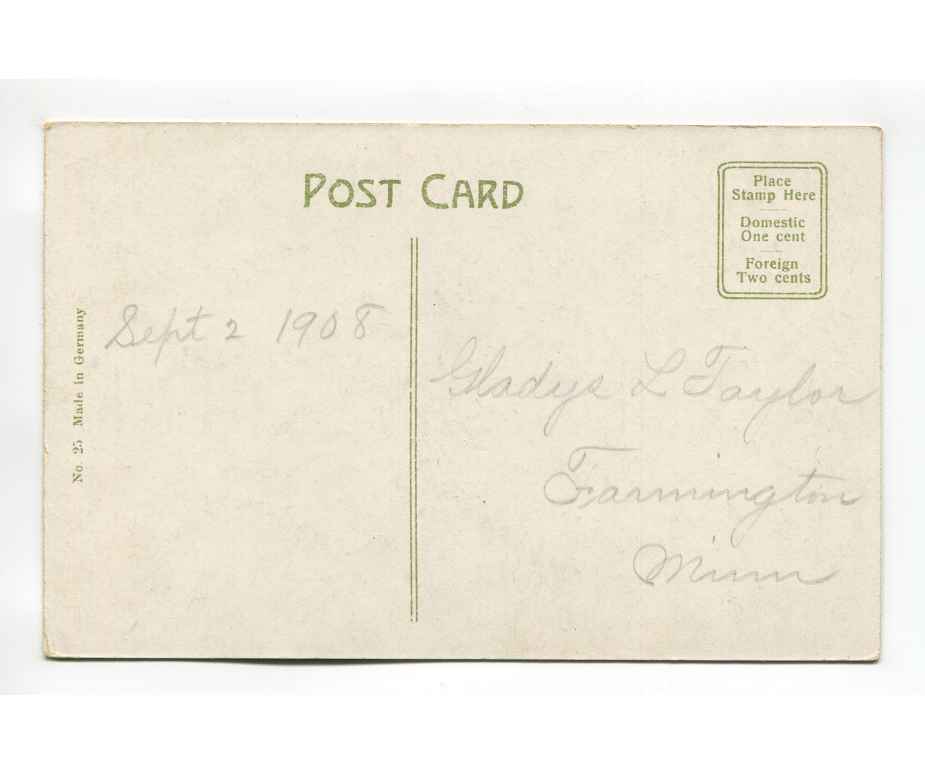 POST CARD
Place
Stamp Here
Domestic
One cent
Foreign
Two cents
No. 25 Made in Germany
Sept 2 1908
Gladys L Taylor
Farmington
Minn